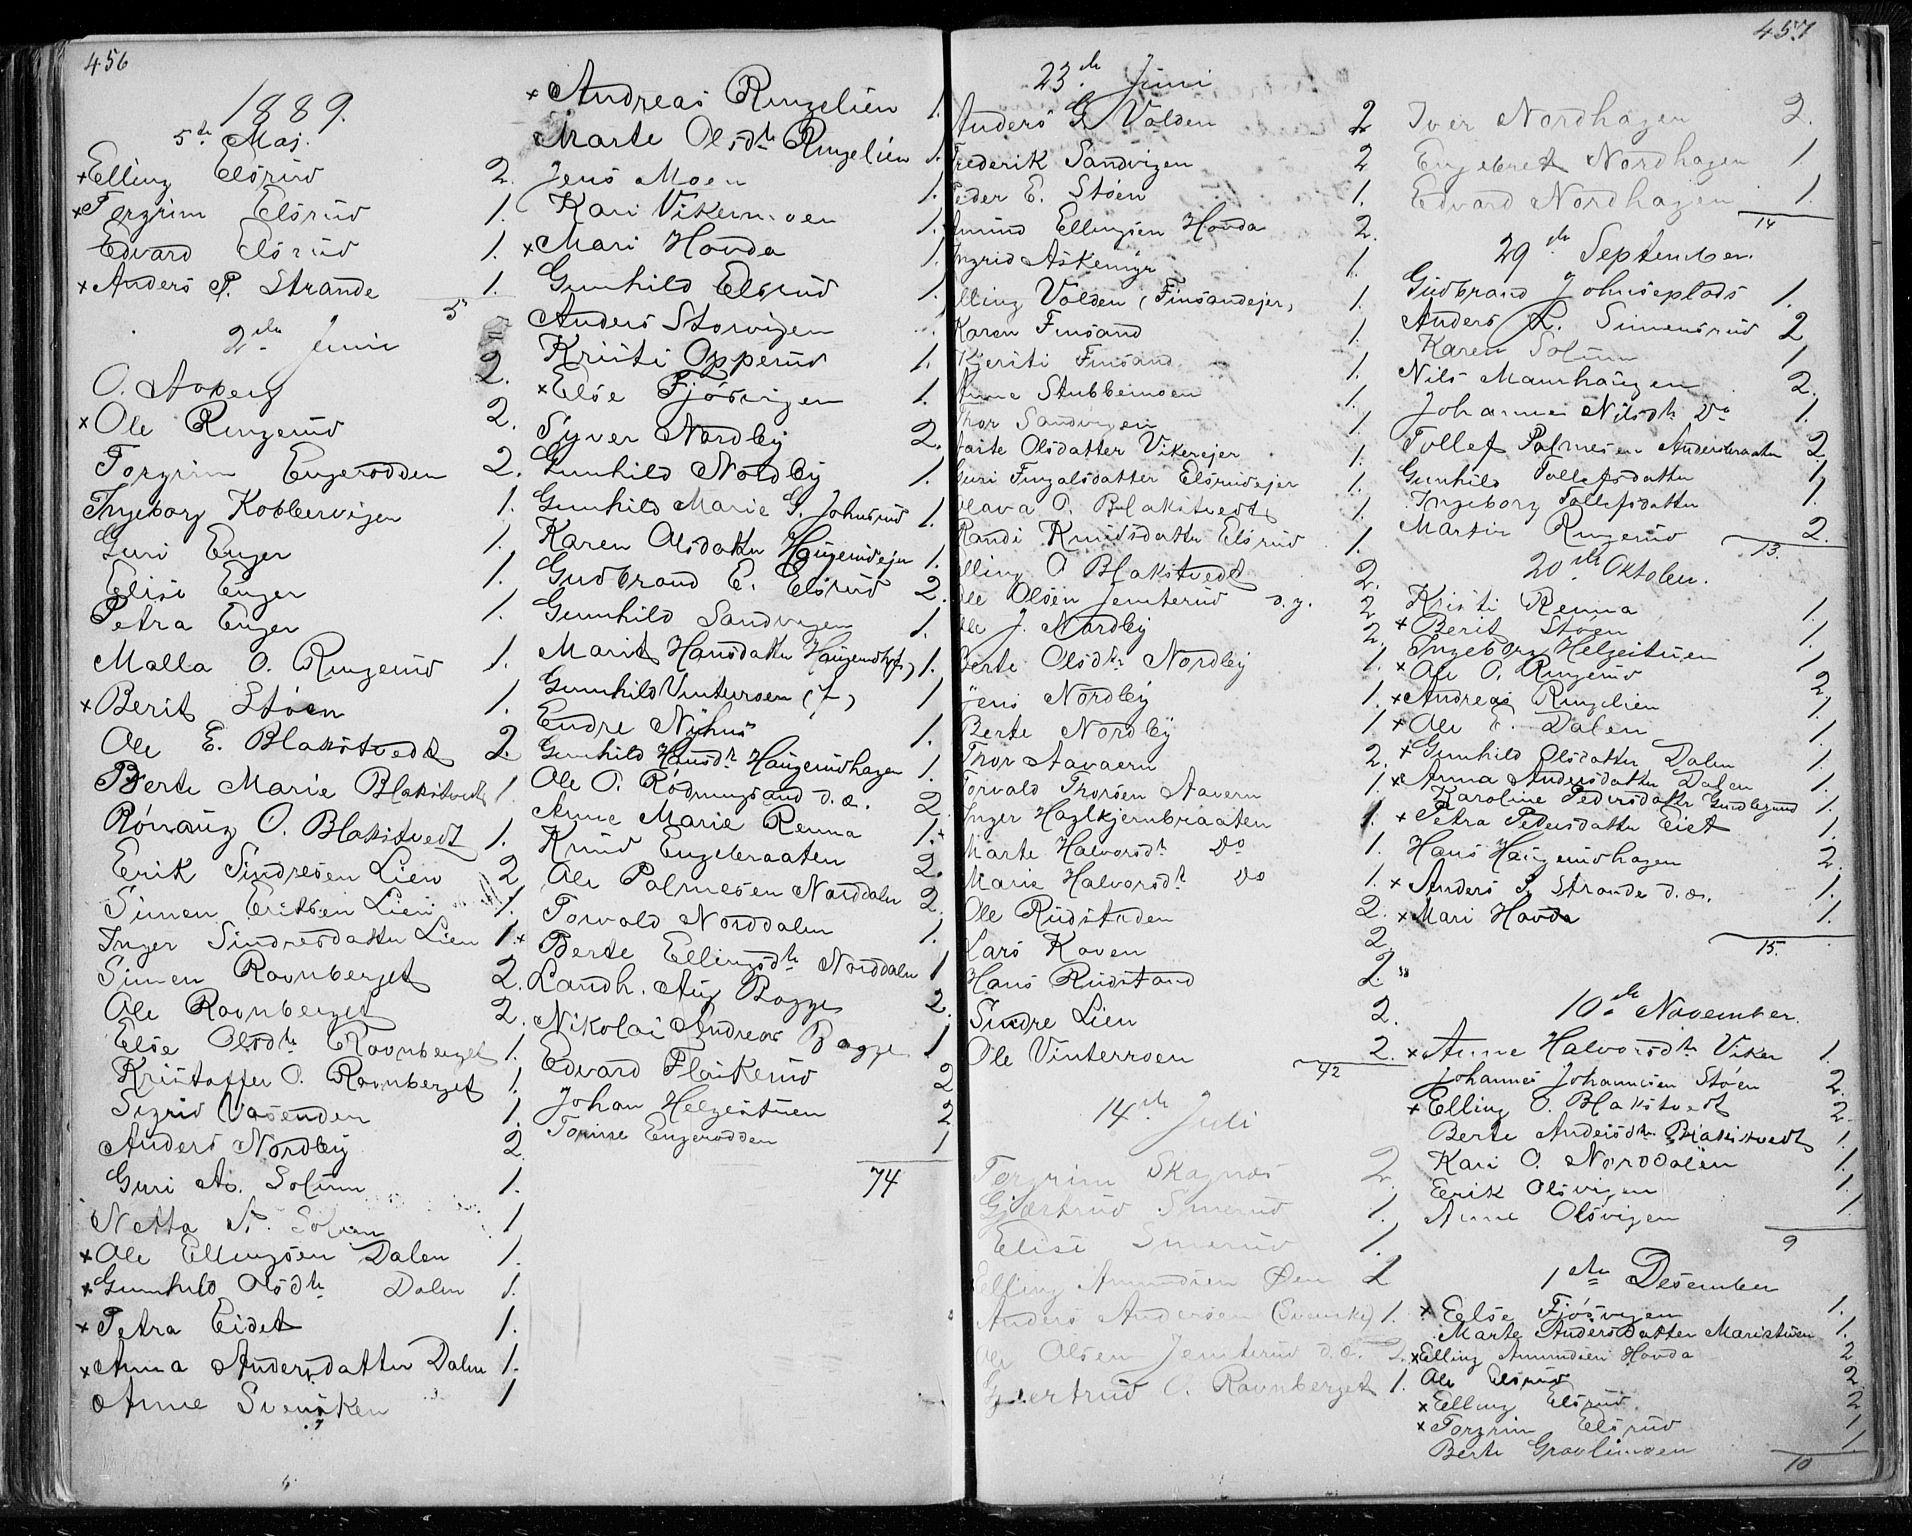 456
1889.
5te Maj.
×Elling Elsrud 2.
×Torgrim Elsrud 1.
Edvard Elsrud 1.
×Anders P. Strande 1.
5
2den Juni
O. Aaberg 2.
×Ole Ringerud 2.
Torgrim Engerodden 2.
Ingeborg Kobbervigen 1.
Guri Enger 1.
Elise Enger 1.
Petra Enger 1.
Malla O. Ringerud 1.
×Berit Støen 1.
Ole E. Blakstvedt 2.
Berte Marie Blakstvedt 1.
Rønnaug O. Blakstvedt 1.
Erik Sindresen Lien 2
Simen Eriksen Lien 1.
Inger Sindresdatter Lien 1.
Simen Ravnberget 2.
Ole Ravnberget 2.
Else Olsdtr Ravnberget 1.
Kristoffer O. Ravnberget 1.
Sigrid Vasenden 1.
Anders Nordby 2.
Guri As. Solum 1.
Netta A. Solum 1
×Ole Ellingsen Dalen 1.
×Gunhild Olsdtr Dalen 1.
×Petra Eidet 1.
×Anna Andersdatter Dalen 1.
Anne Svensken 1
×Andreas Ringelien 1.
Marte Olsdtr Ringelien 1.
Jens Moen 1.
Kari Vikermoen 1.
×Mari Hovda 1.
Gunhild Elsrud 1.
Anders Storvigen 1.
Kristi Opperud 1.
×Else Fjøsvigen 1.
Syver Nordby 2.
Gunhild Nordby 1.
Gunhild Marie G. Johnsrud 1.
Karen Olsdatter Haugerudejer 1.
Gudbrand E. Elsrud 2.
Gunhild Sandvigen 1.
Marit Hansdatter 1.
Gunhild Vinterroen (f) 1
Endre Nyhus 1.
Gunhild Hansdtr Haugerudhagen 1.
Ole O. Rødningsand d.æ. 2.
Anne Marie Renna 1.
Knud Engebraaten 2.
Ole Palmesen Norddalen 2.
Torvald Norddalen 1.
×Berte Ellingsdtr Norddalen 1
Landh. Aug Bagge 2.
Nikolai Andreas Bagge 1
Edvard Flaskerud 2
Johan Helgestuen 2
Tomine Engerodden 1
74
457
23de Juni
Anders G. Valden 2
Frederik Sandvigen 2
Peder E. Støen 1.
Amund Ellingsen Hovda 2.
Ingrid Askemyr 1.
Elling Valden (Finsandejer) 1.
Karen Finsand 1.
Kjersti Finsand 1.
Anne Stubbemoen 1.
Thor Sandvigen 1
Marte Olsdatter Vikerejer 1.
Guri Fingalsdatter Elsrudejer 1.
Olava O. Blakstvedt 1.
Randi Knudsdatter Elsrud 1.
Elling O Blakstvedt 2.
Ole Olsen Jemterud d.y. 2
Ole J. Nordby 2.
Berte Olsdtr Nordby 1.
Jens Nordby 1.
Berte Nordby 1
Thor Aavaern 2.
Torvald Thorsen Aavern 1.
Inger Haglkjernbraaten 1.
Marte Halvorsdtr Do 1.
Marie Halvorsdtr Do 1.
Ole Rudstaden 2.
Lars Koven 2.
Hans Rudstand 2
Sindre Lien 2.
Ole Vinterroen 2.
42
14de Juli
Torgrim Skagnæs 2
Gjertrud Smerud 1.
Elise Smerud 1.
Elling Amundsen Øen 2
Anders Andersen (Svenske) 1.
Ole Olsen Jemterud d.æ. 2.
Gjertrud O. Ravnberget 1.
Iver Nordhagen 2.
Engebret Nordhagen 1
Edvard Nordhagen 1.
14
29de September.
Gudbrand Johnseplads 1.
Anders L. Simensrud 2
Karen Solum 1
Nils Maurhaugen 2.
Johanne Nilsdtr Do 1.
Tollef Palmesen Andersbraaten 2.
Gunhild Tollefsdatter 1
Ingeborg Tollefsdatter 1.
Martin Ringerud 2.
13.
20de Oktober.
Kristi Renna 1.
×Berit Støen 1.
Ingeborg Helgestuen 1
×Ole O. Ringerud 2
×Andreas Ringelien 1.
×Ole E. Dalen 1.
×Gunhild Olsdatter Dalen 1.
×Anna Andersdatter Dalen 1.
Karoline Pedersdatter 1.
×Petra Pedersdatter Eiet 1.
Hans Haugerudhagen 2.
×Anders P. Strande d.æ. 1.
×Mari Hovda 1.
15.
10de November.
×Anne Halvorsdtr Viker 1.
Johannes Johannesen Støen 2.
×Elling O. Blakstvedt 2.
Berte Andersdtr Blakstvedt 1.
Kari O. Norddalen 1.
Erik Olsvigen 1.
Anne Olsvigen 1.
9
1ste Desember
×Else Fjøsvigen 1.
Marte Andersdatter Maristuen 1.
×Elling Amundsen Hovda 2
Ole Elsrud 2.
×Elling Elsrud. 2
×Torgrim Elsrud 1
Berte Gravlimoen 1
10